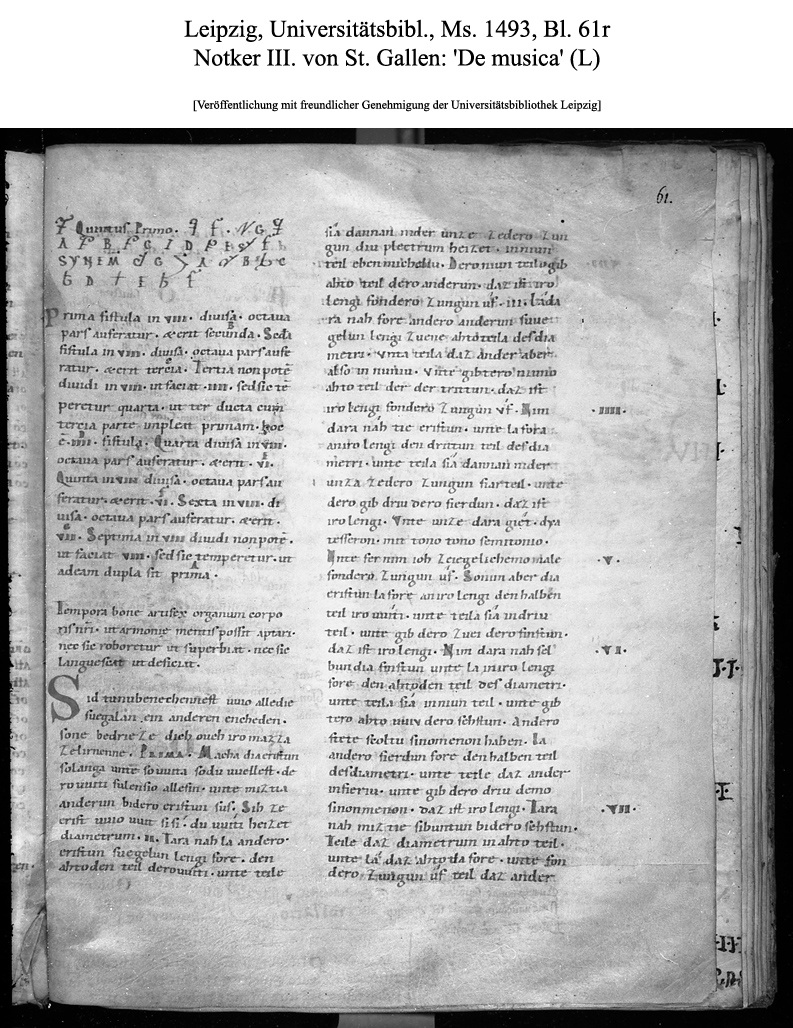 Leipzig, Universitätsbibl., Ms. 1493, Bl. 61r
Notker III. von St. Gallen: 'De musica' (L)
[Veröffentlichung mit freundlicher Genehmigung der Universitätsbibliothek Leipzig]
61.
Quintus Primo.
Prima fistula in viii. diuisa. octaua
pars auferatur. & erit secunda. Secda
fistula in viii. diuisa. octaua pars aufe
ratur. & erit tercia. Tertia non potē
diuidi in viii. ut faciat .iiii. sed sic tē
peretur quarta. ut ter ducta cum
tercia parte impleat primam. hoc
ē .iiii. fistula. Quarta diuisa in viii.
octaua pars auferatur. & erit .v.
Quinta in viii diuisa. octaua pars au
feratur. & erit .vi. Sexta in viii. di
uisa. octaua pars auferatur. & erit.
.vii. Septima in viii diuidi non potē.
ut faciat viii. sed sic temperetur. ut
ad eam dupla sit prima.
Tempora bone artifex organum corpo
ris nri. ut armonie mentis possit aptari.
nec sic roboretur ut superbiat. nec sic
languescat ut deficiat.
Sid tu nu bechennest uuio alle die
suegalun ein anderen encheden.
sone bedrieze dich ouch iro mazza
zelirnenne. PRIMA. Macha dia eristun
so langa unte so uuita so du uuellest. de
ro uuiti fulensio allesin. unte miz tia
anderun bi dero eristun sus. Sih ze
erist uuio uuit si si. du uuiti heizet
diametrum. II. Tara nah la andero.
eristun suegelun lengi fore. den
ahtoden teil dero uuiti. unte teile
sia dannan nider unze zedero zun
gun diu plectrum heizet. in niun
teil ebenmichelliu. Dero niun teilo gib
ahto teil dero anderun. daz ist iro
lengi fondero zungun uf. III. La da
ra nah fore andero anderun suue
gelun lengi zuene ahtoteila des dia
metri. unta teila daz ander aber
also in niuniu. unte gib tero niuno
ahto teil der der trittun. daz ist
iro lengi fondero zungun uf. Nim
.IIII.
dara nah tie eristun. unte la fora
an iro lengi den drittun teil des dia
metri. unte teila sia dannan nider
unza zedero zungun fiarteil. unte
dero gib driu dero fierdun. daz ist
iro lengi. Unte unze dara giet. dya
tesseron. mit tono tono semitonio.
Unte fernim ioh ze iegelichemo male
.V.
fondero zungun uf. So nim aber dia
eristun la fore an iro lengi den halben
teil iro uuiti. unte teila sia in driu
teil. unte gib dero zuei dero finftun.
daz ist iro lengi. Nim dara nah sel
.VI.
bun dia finftun unte la in iro lengi
fore den ahtoden teil des diametri.
unte teila sia in niun teil. unte gib
tero ahto uuiv dero sehstun. Andero
stete scoltu sinomenon haben. La
andero fierdun fore den halben teil
des diametri. unte teile daz ander
in fieriu. unte gib dero driu demo
sinonmenon. daz ist iro lengi. Tara
.VII.
nah miz tie sibuntun bi dero sehstun.
Teile daz diametrum in ahto teil.
unte la daz ahto da fore. unte fon
dero zungun uf teil daz ander